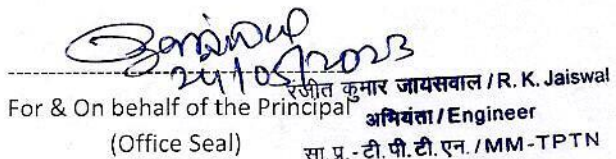 24/05/2023
रंजीत कुमार जायसवाल / R. K. Jaiswal
For & On behalf of the Principal
अभियंता / Engineer
(Office Seal)
सा.प्र.-टी.पी.टी.एन. / MM-TPTN